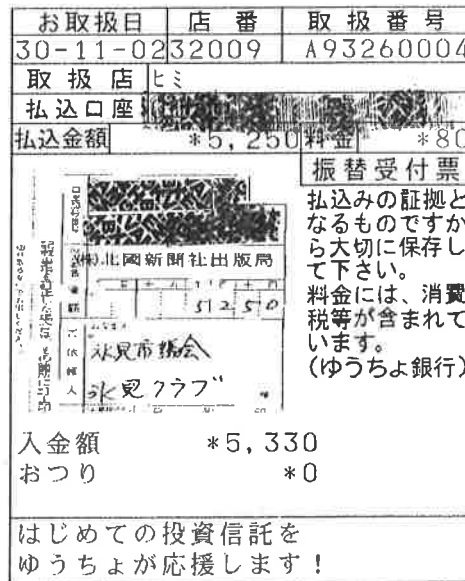 お取扱日 店番 取扱番号
30-11-02 32009 A93260004
取扱店 ヒミ
払込口座
払込金額 *5,250 料金 *80
振替受付票
払込みの証拠と
なるものですか
ら大切に保存し
て下さい。
料金には、消費
税等が含まれて
います。
(ゆうちょ銀行)
(株)北國新聞社出版局
5250
氷見市議会
氷見クラブ
入金額 *5,330
おつり *0
はじめての投資信託を
ゆうちょが応援します!